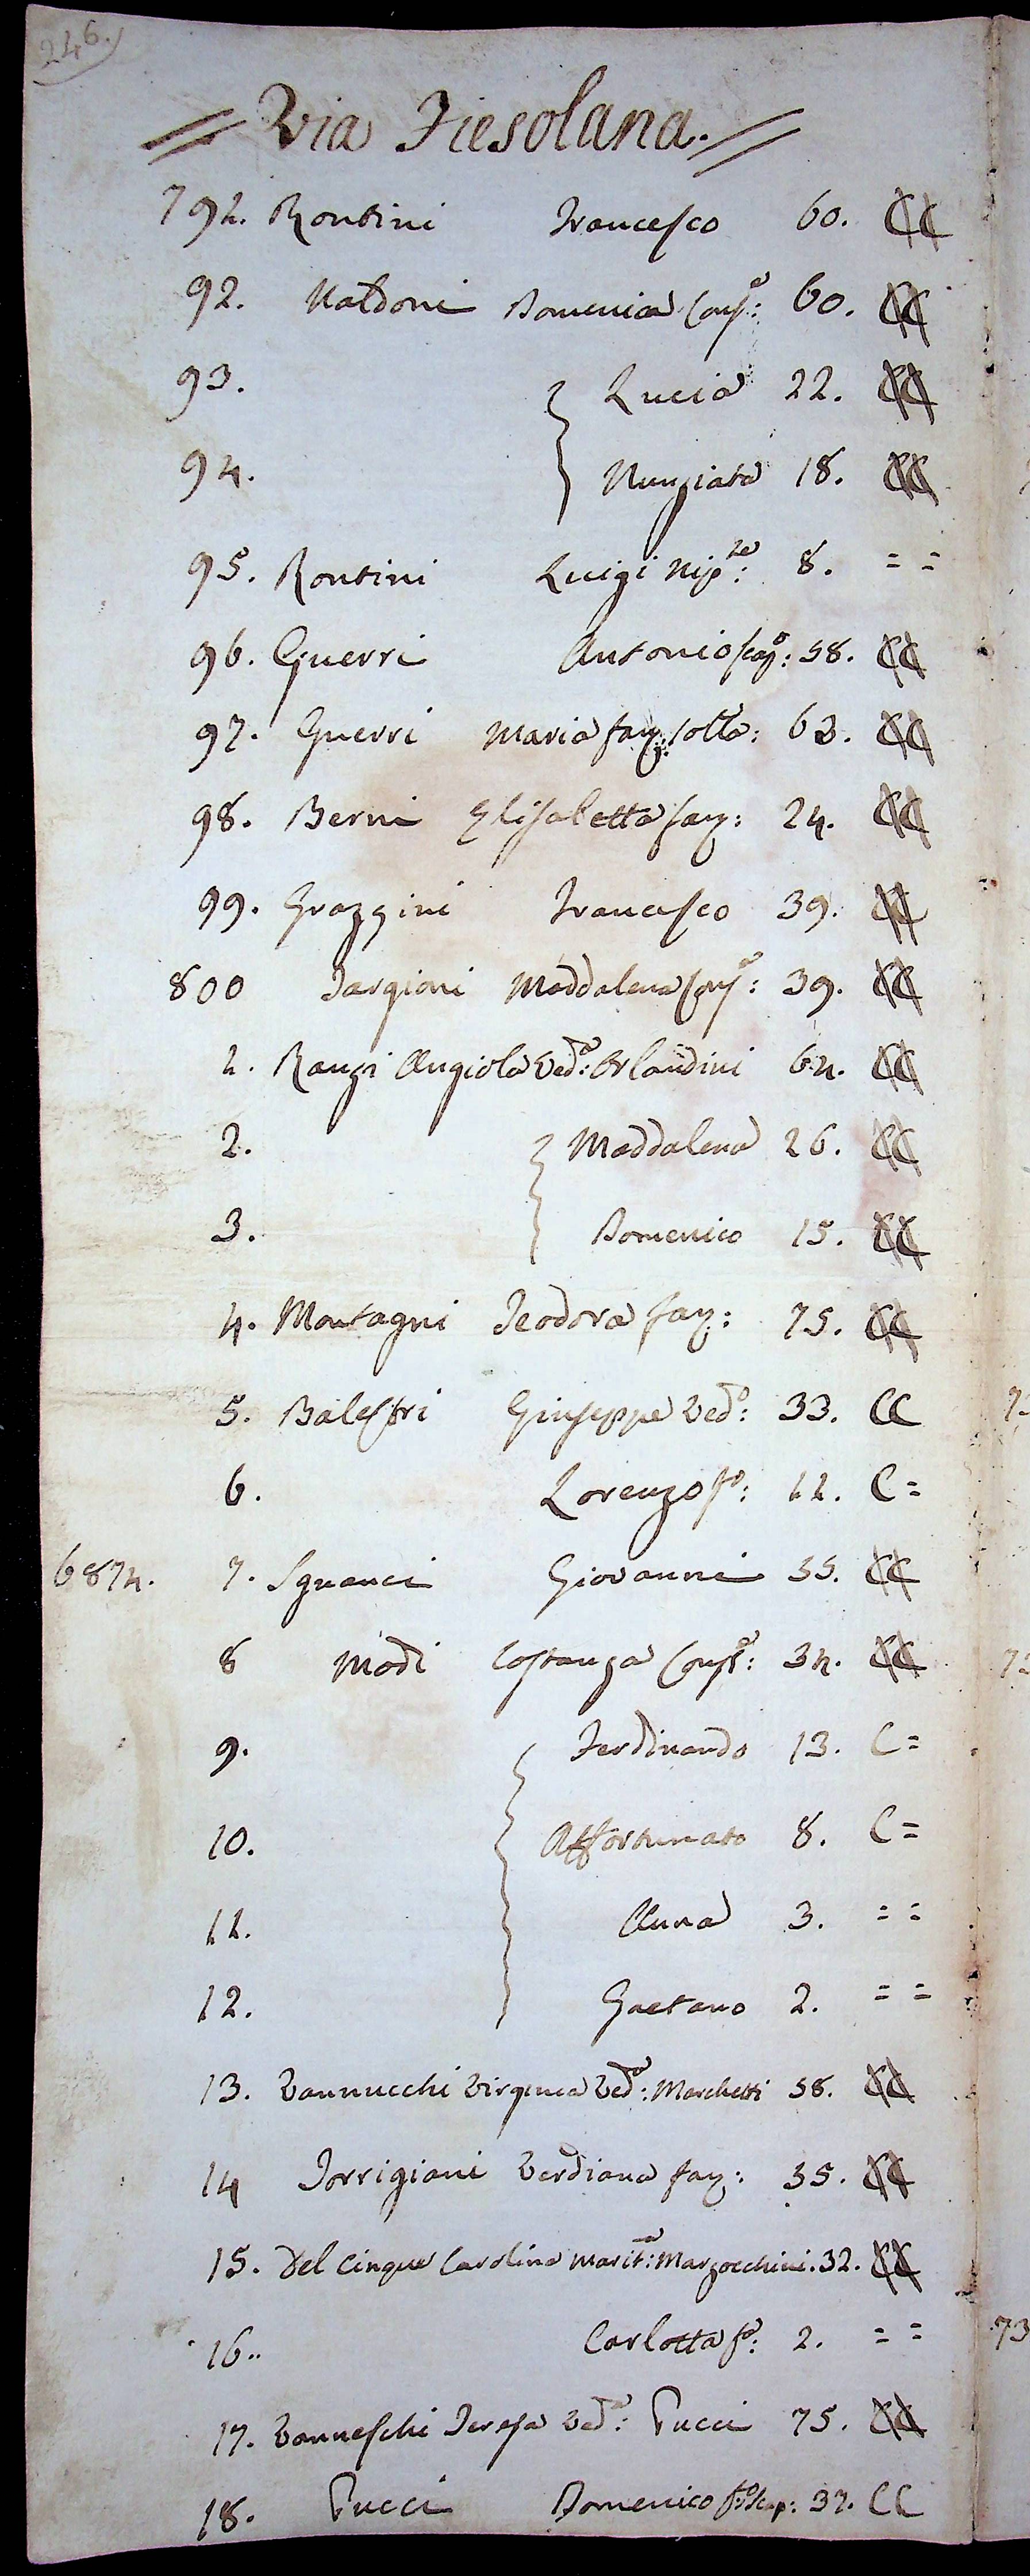 246.
= Via Fiesolana. =
791. Rontini Francesco 60. CC
92. Naldoni Domenica Consᵉ: 60. CC
93. Lucia 22. CC
94. Nunziata 18. CC
95. Rontini Luigi Nipᵗᵉ: 8. = =
96. Guerri Antonio scapᵒ: 58. CC
97. Guerri Maria fanz: 63. CC
98. Berni Elisabetta fanz: 24. CC
99. Grazzini Francesco 39. CC
800 Targioni Maddalena Consᵉ: 39. CC
1. Ranzi Angiola Vedᵃ: Orlandini 64. CC
2. Maddalena 26. CC
3. Domenico 15. CC
4. Montagni Teodora fanz: 75. CC
5. Balestri Giuseppe Vedᵒ: 33. CC
6. Lorenzo fᵒ: 11. C =
6874. 7. Sguanci Giovanni 35. CC
8 Modi Costanza Consᵉ: 34. CC
9. Ferdinando 13. C =
10. Affortunato 8. C =
11. Anna 3. = =
12. Gaetano 2. = =
13. Vannucchi Virginia Vedᵃ: Marchetti 58. CC
14 Torrigiani Verdiana fanz: 35. CC
15. Del Cinque Carolina Maritᵃ: Marzocchini. 32. CC
16.. Carlotta fᵃ: 2. = =
17. Vanneschi Teresa Vedᵃ: Pucci 75. CC
18. Pucci Domenico fᵒ scap: 37. CC